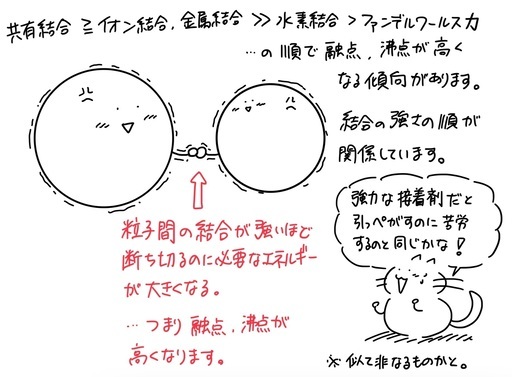 共有結合 ≧ イオン結合, 金属結合 ≫ 水素結合 > ファンデルワールス力
…の順で融点, 沸点が高く
なる傾向があります。
結合の強さの順が
関係しています。
強力な接着剤だと
引っぺがすのに苦労
するのと同じかな!
粒子間の結合が強いほど
断ち切るのに必要なエネルギー
が大きくなる。
…つまり融点, 沸点が
高くなります。
※似て非なるものかと。